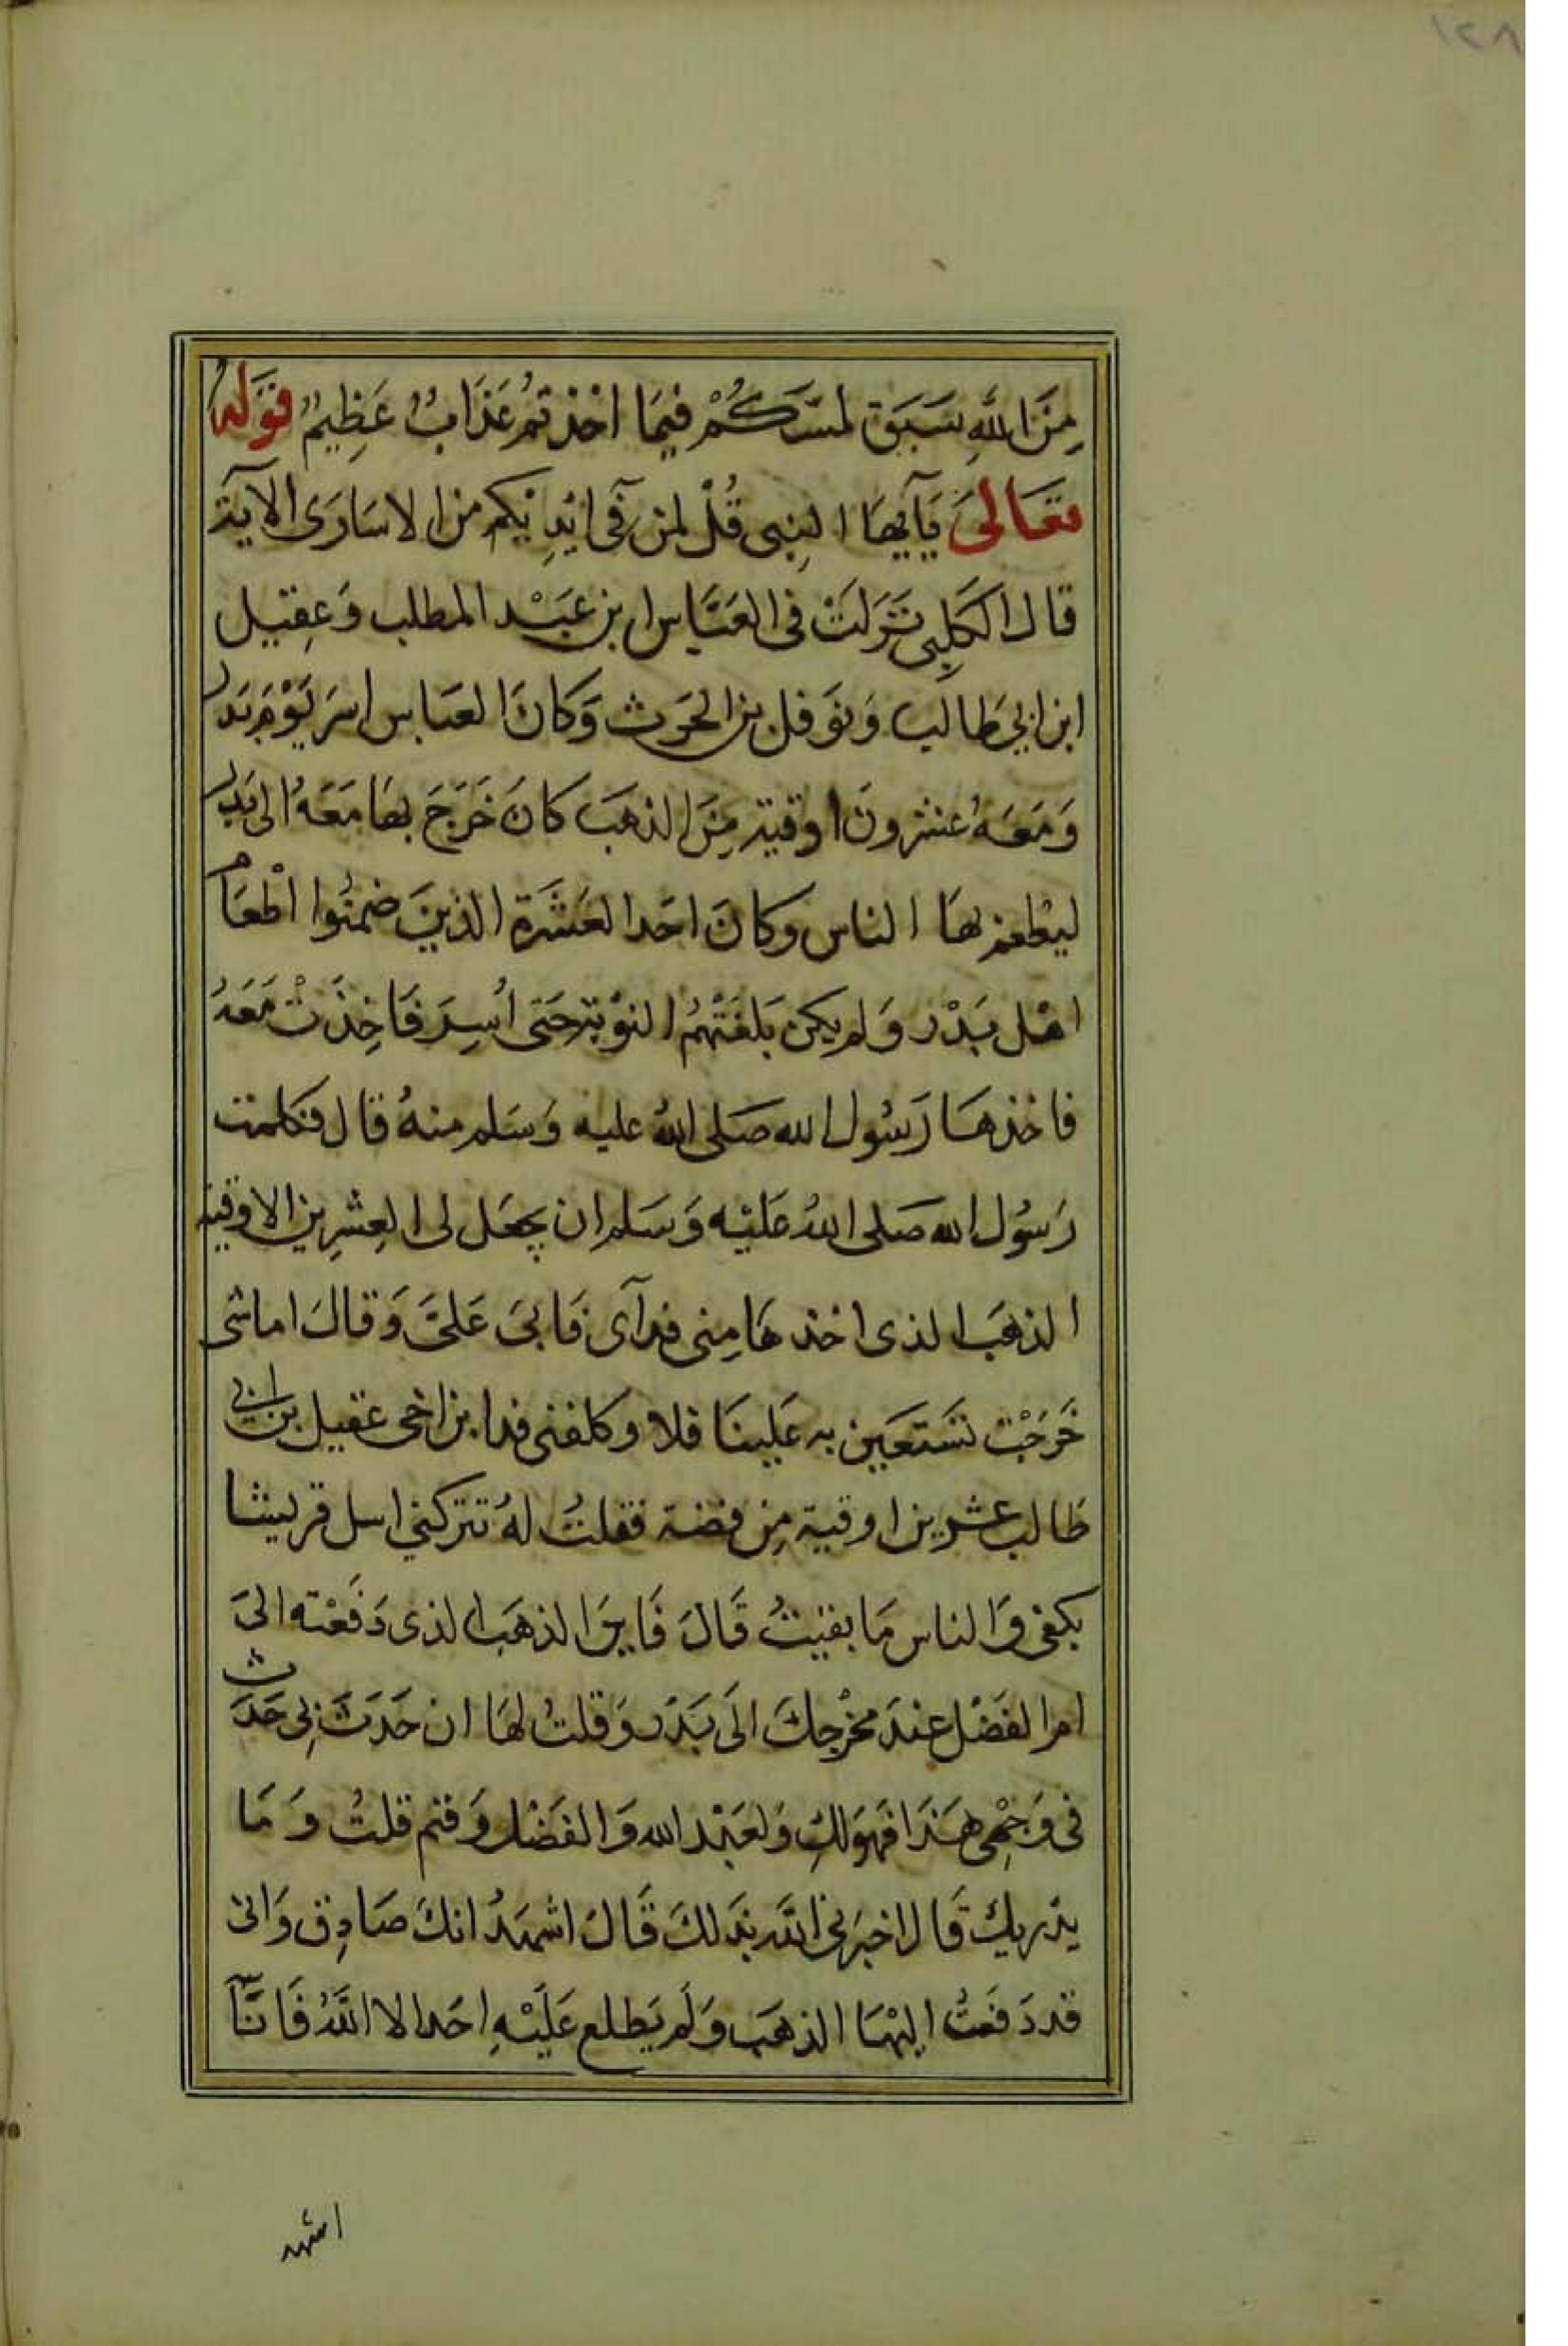 ١٢٨
مِنَ اللهِ سَبَقَ لمسَّكُمْ فيمَا اخْذتمُ عَذَابٌ عَظِيمٌ قوَله
تعَالىَ يَآيهَا النبِى قُلْ لمن فىٓ ايْدِيْكم من الاسَارَى الآيَة
قال الكَلِبى نَزَلَتْ فى العَبَّاس ابن عَبْد المطلب وَعِقيل
ابن ابي طَالب وَنوَفل بن الحَرث وَكانَ العَباس اسَر يَوْمَ بَدر
وَمَعَهُ عشرونَ اوقية مِنَ الذهَب كانَ خَرَجَ بهَا مَعَهُ الى بَدر
ليُطعم بهَا الناس وكانَ احَد العَشَرَة الذينَ ضمنُوا اطعَام
اهْل بَدْر وَلم يكن بَلغَتْهُم النوْبة حَتى اُسِرَ فَاخِذَتْ مَعَهُ
فاخذهَا رَسُول الله صَلى اللهُ عليه وَسَلم منهُ قال فكلمت
رَسُول الله صَلى اللهُ عَليْه وَسَلم ان يجعَل لى العِشرِين الاوقية
الذهَب الذى اخذهَا مِنى فدآى فَابىَ عَلىَّ وَقالَ اما شى
خَرَجْت تسَتعَين به عَلينَا فلا وكلفنى فدا بن اخى عقيل بن ابي
طالب عشرين اوقية مِن فضة فقلتُ لهُ تتركني اسل قريشا
بكفى وَالناس مَا بقيتُ قَالَ فَاينَ الذهَب الذى دَفَعْته الىَ
ام الفَضْل عِندَ مخْرجكَ الَى بَدْر وَقلتُ لهَا ان حَدَثَ بِى حَدَث
فى وَجْهى هَذَا فَهوَ لكِ وَلعَبْد الله وَالفَضْل وَقثم قلتُ وَمَا
يدْريكَ قَال اخبَرَنى اللّه بذَلكَ قَالَ اشهَدُ انكَ صَادِق وَانى
قد دَفَعتُ اليْهَا الذهَب وَلَم يَطلع عَلَيْهِ احَد الا اللَّهُ فَانَآ
اشهد